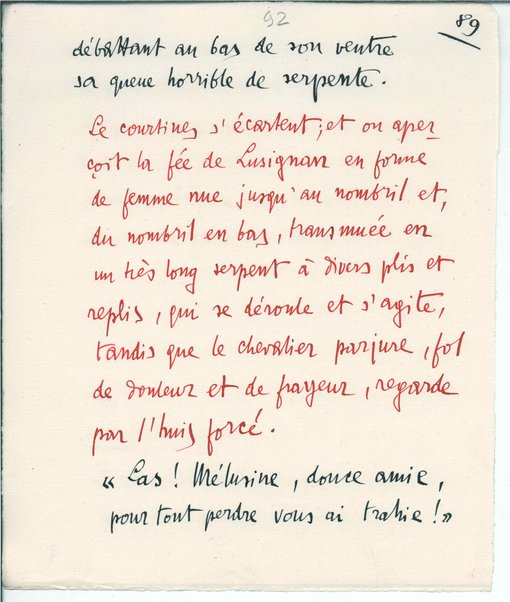 92
89
débattant au bas de son ventre
sa queue horrible de serpente.
Le courtines s'écartent ; et on aper-
çoit la fée de Lusignan en forme
de femme nue jusqu'au nombril et,
du nombril en bas, transmuée en
un très long serpent à divers plis et
replis, qui se déroule et s'agite,
tandis que le chevalier parjure, fol
de douleur et de frayeur, regarde
par l'huis forcé.
« Las ! Mélusine, douce amie,
pour tout perdre vous ai trahie ! »